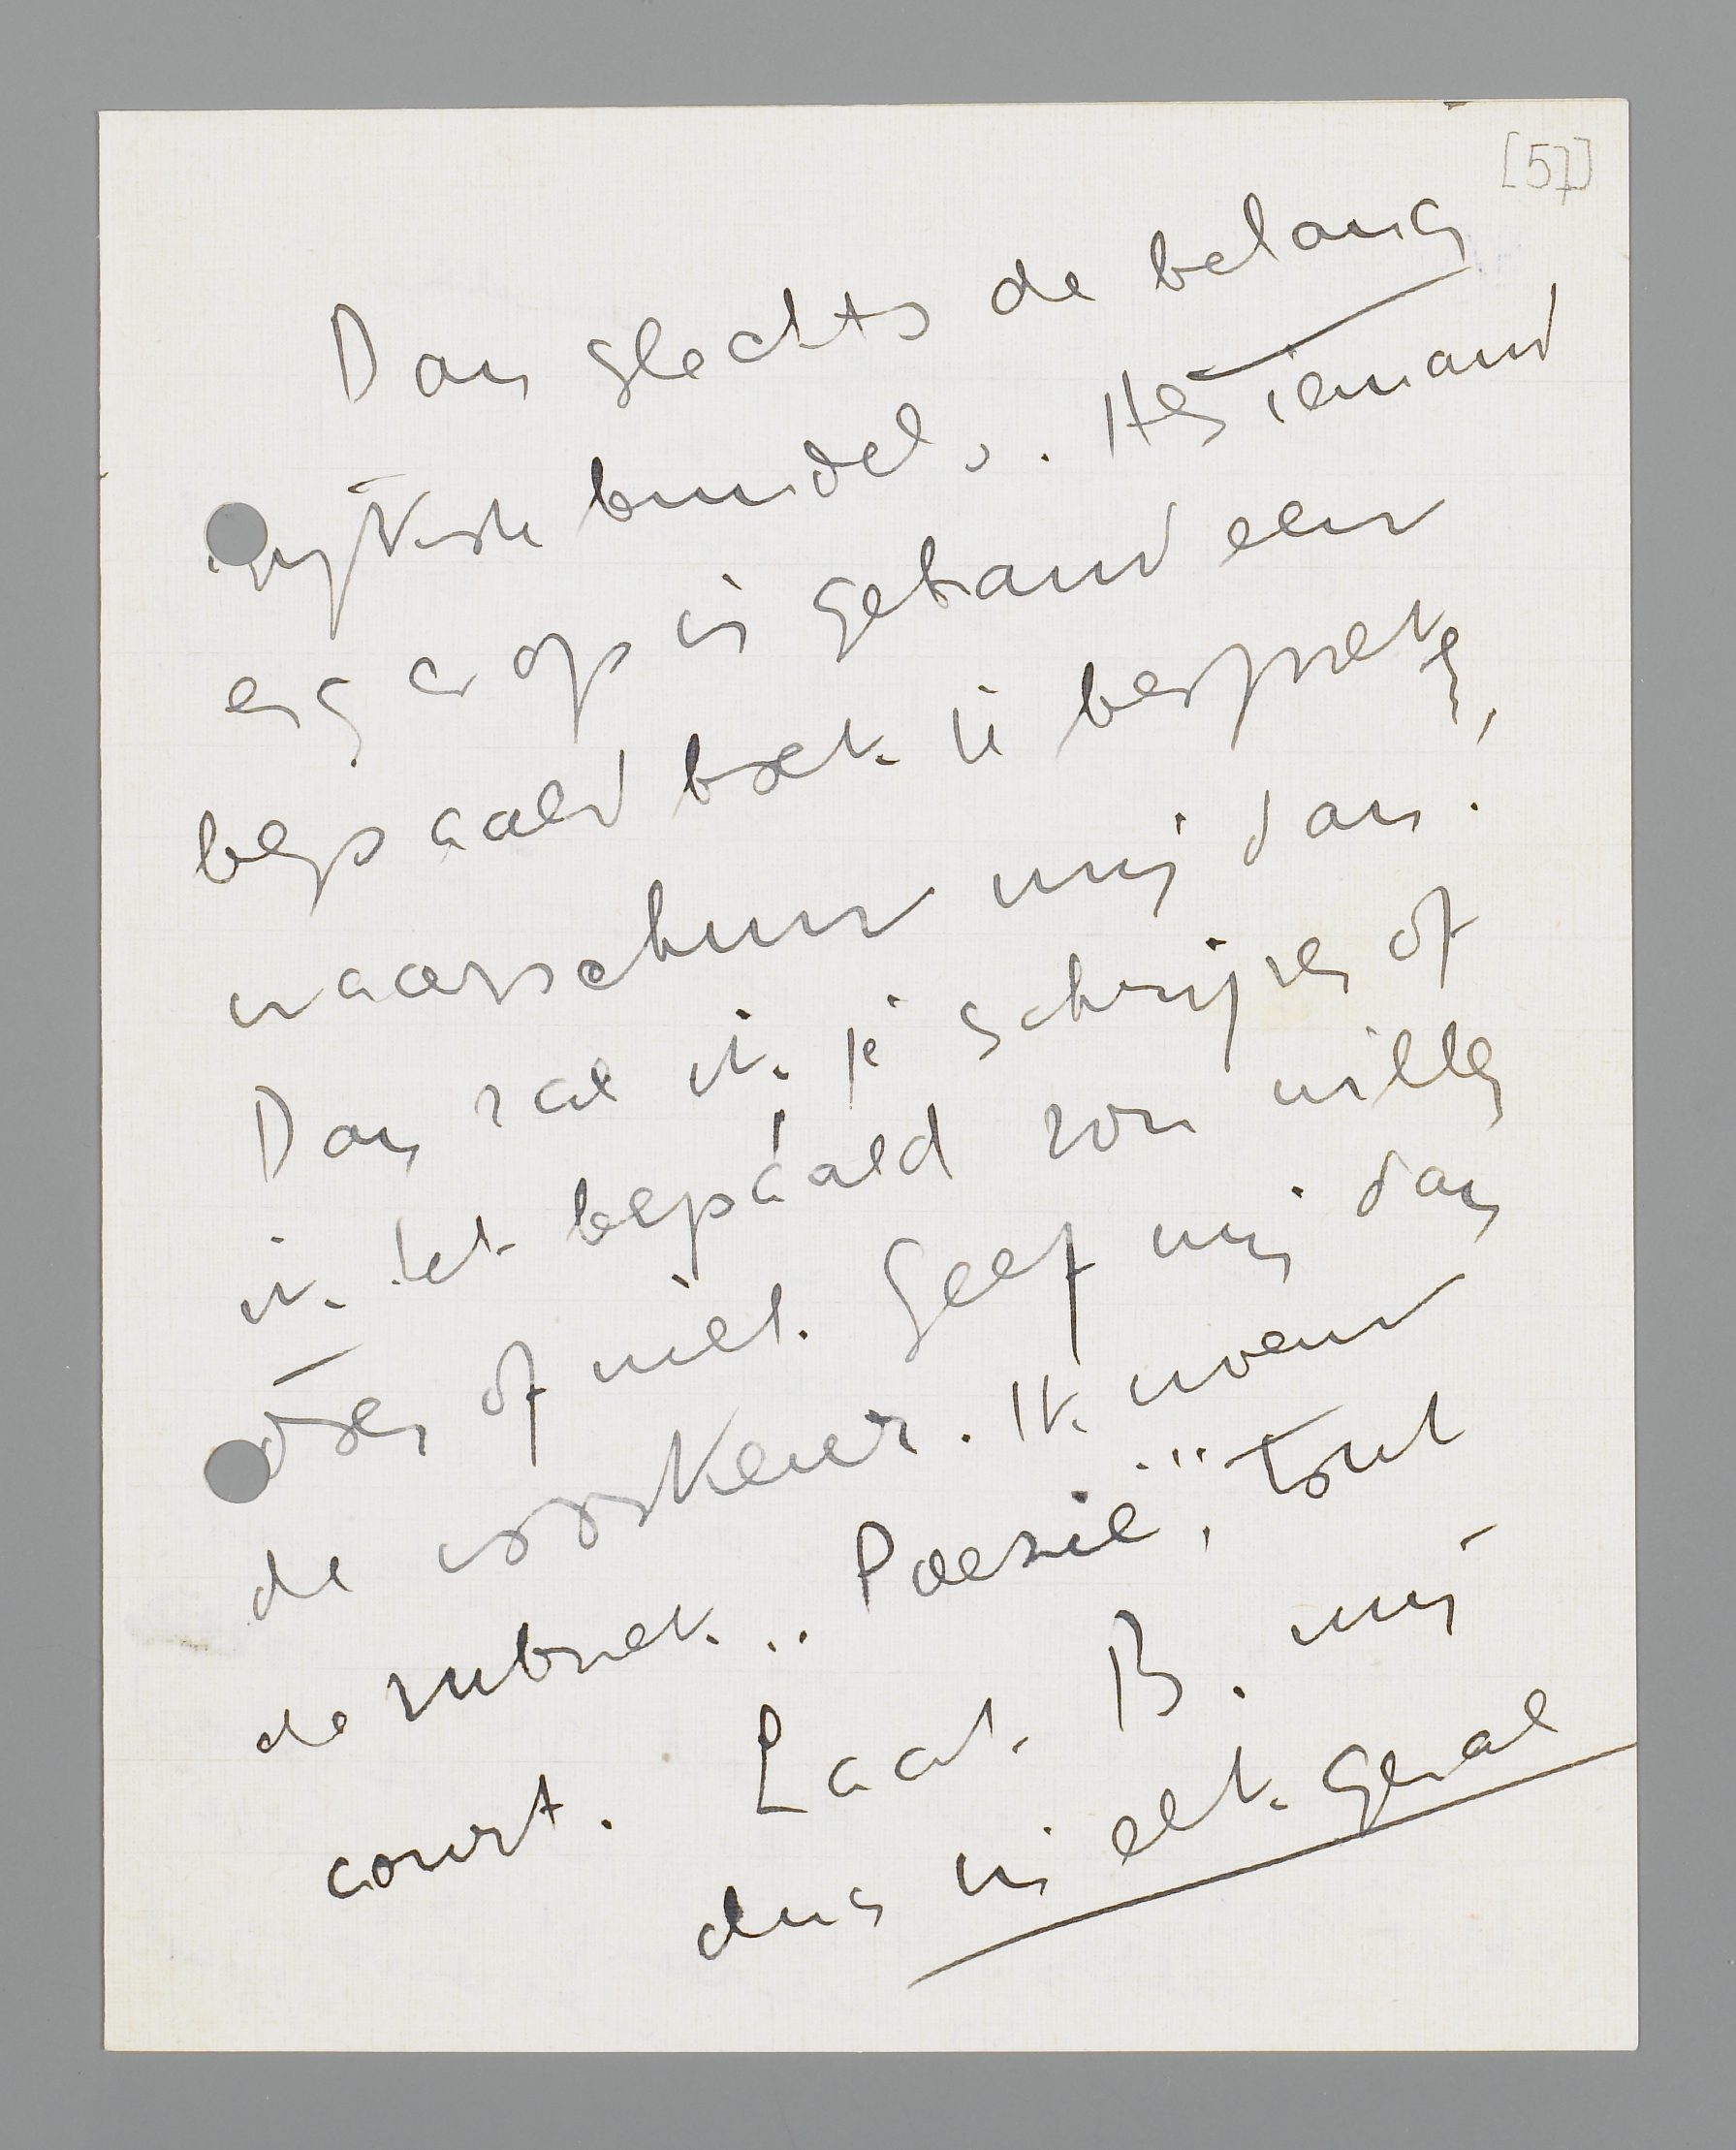 [57]
Dan slechts de belang
rijkste bundels. Heeft iemand
er op in gebrand een
bepaald boek te bespreken,
waarschuw mij dan.
Dan zal ik je schrijven of
ik het bepaald zou willen
doen of niet. Geef mij dan
de voorkeur. Ik noem
de rubriek „Poezie", tout
court. Laat B. mij
dus in elk geval